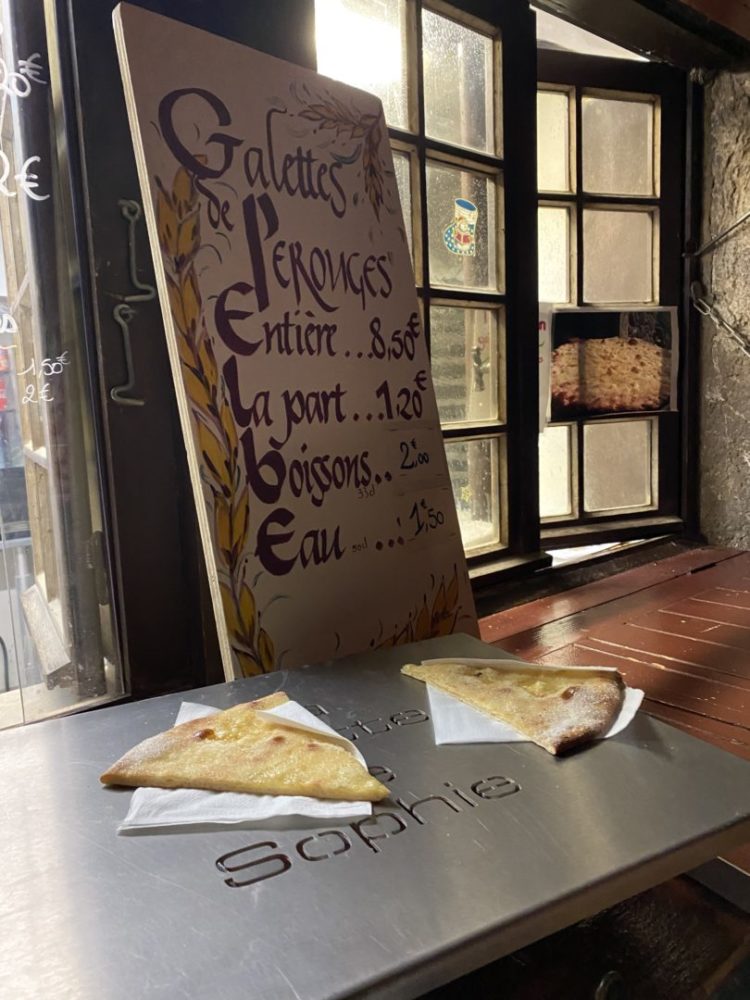 Galettes
de
PEROUGES
Entière...8,50€
La part...1,20€
Boissons.. 2,€00
33cl
Eau 50cl ... 1,€50
2€
1,50€
2€
Sophie